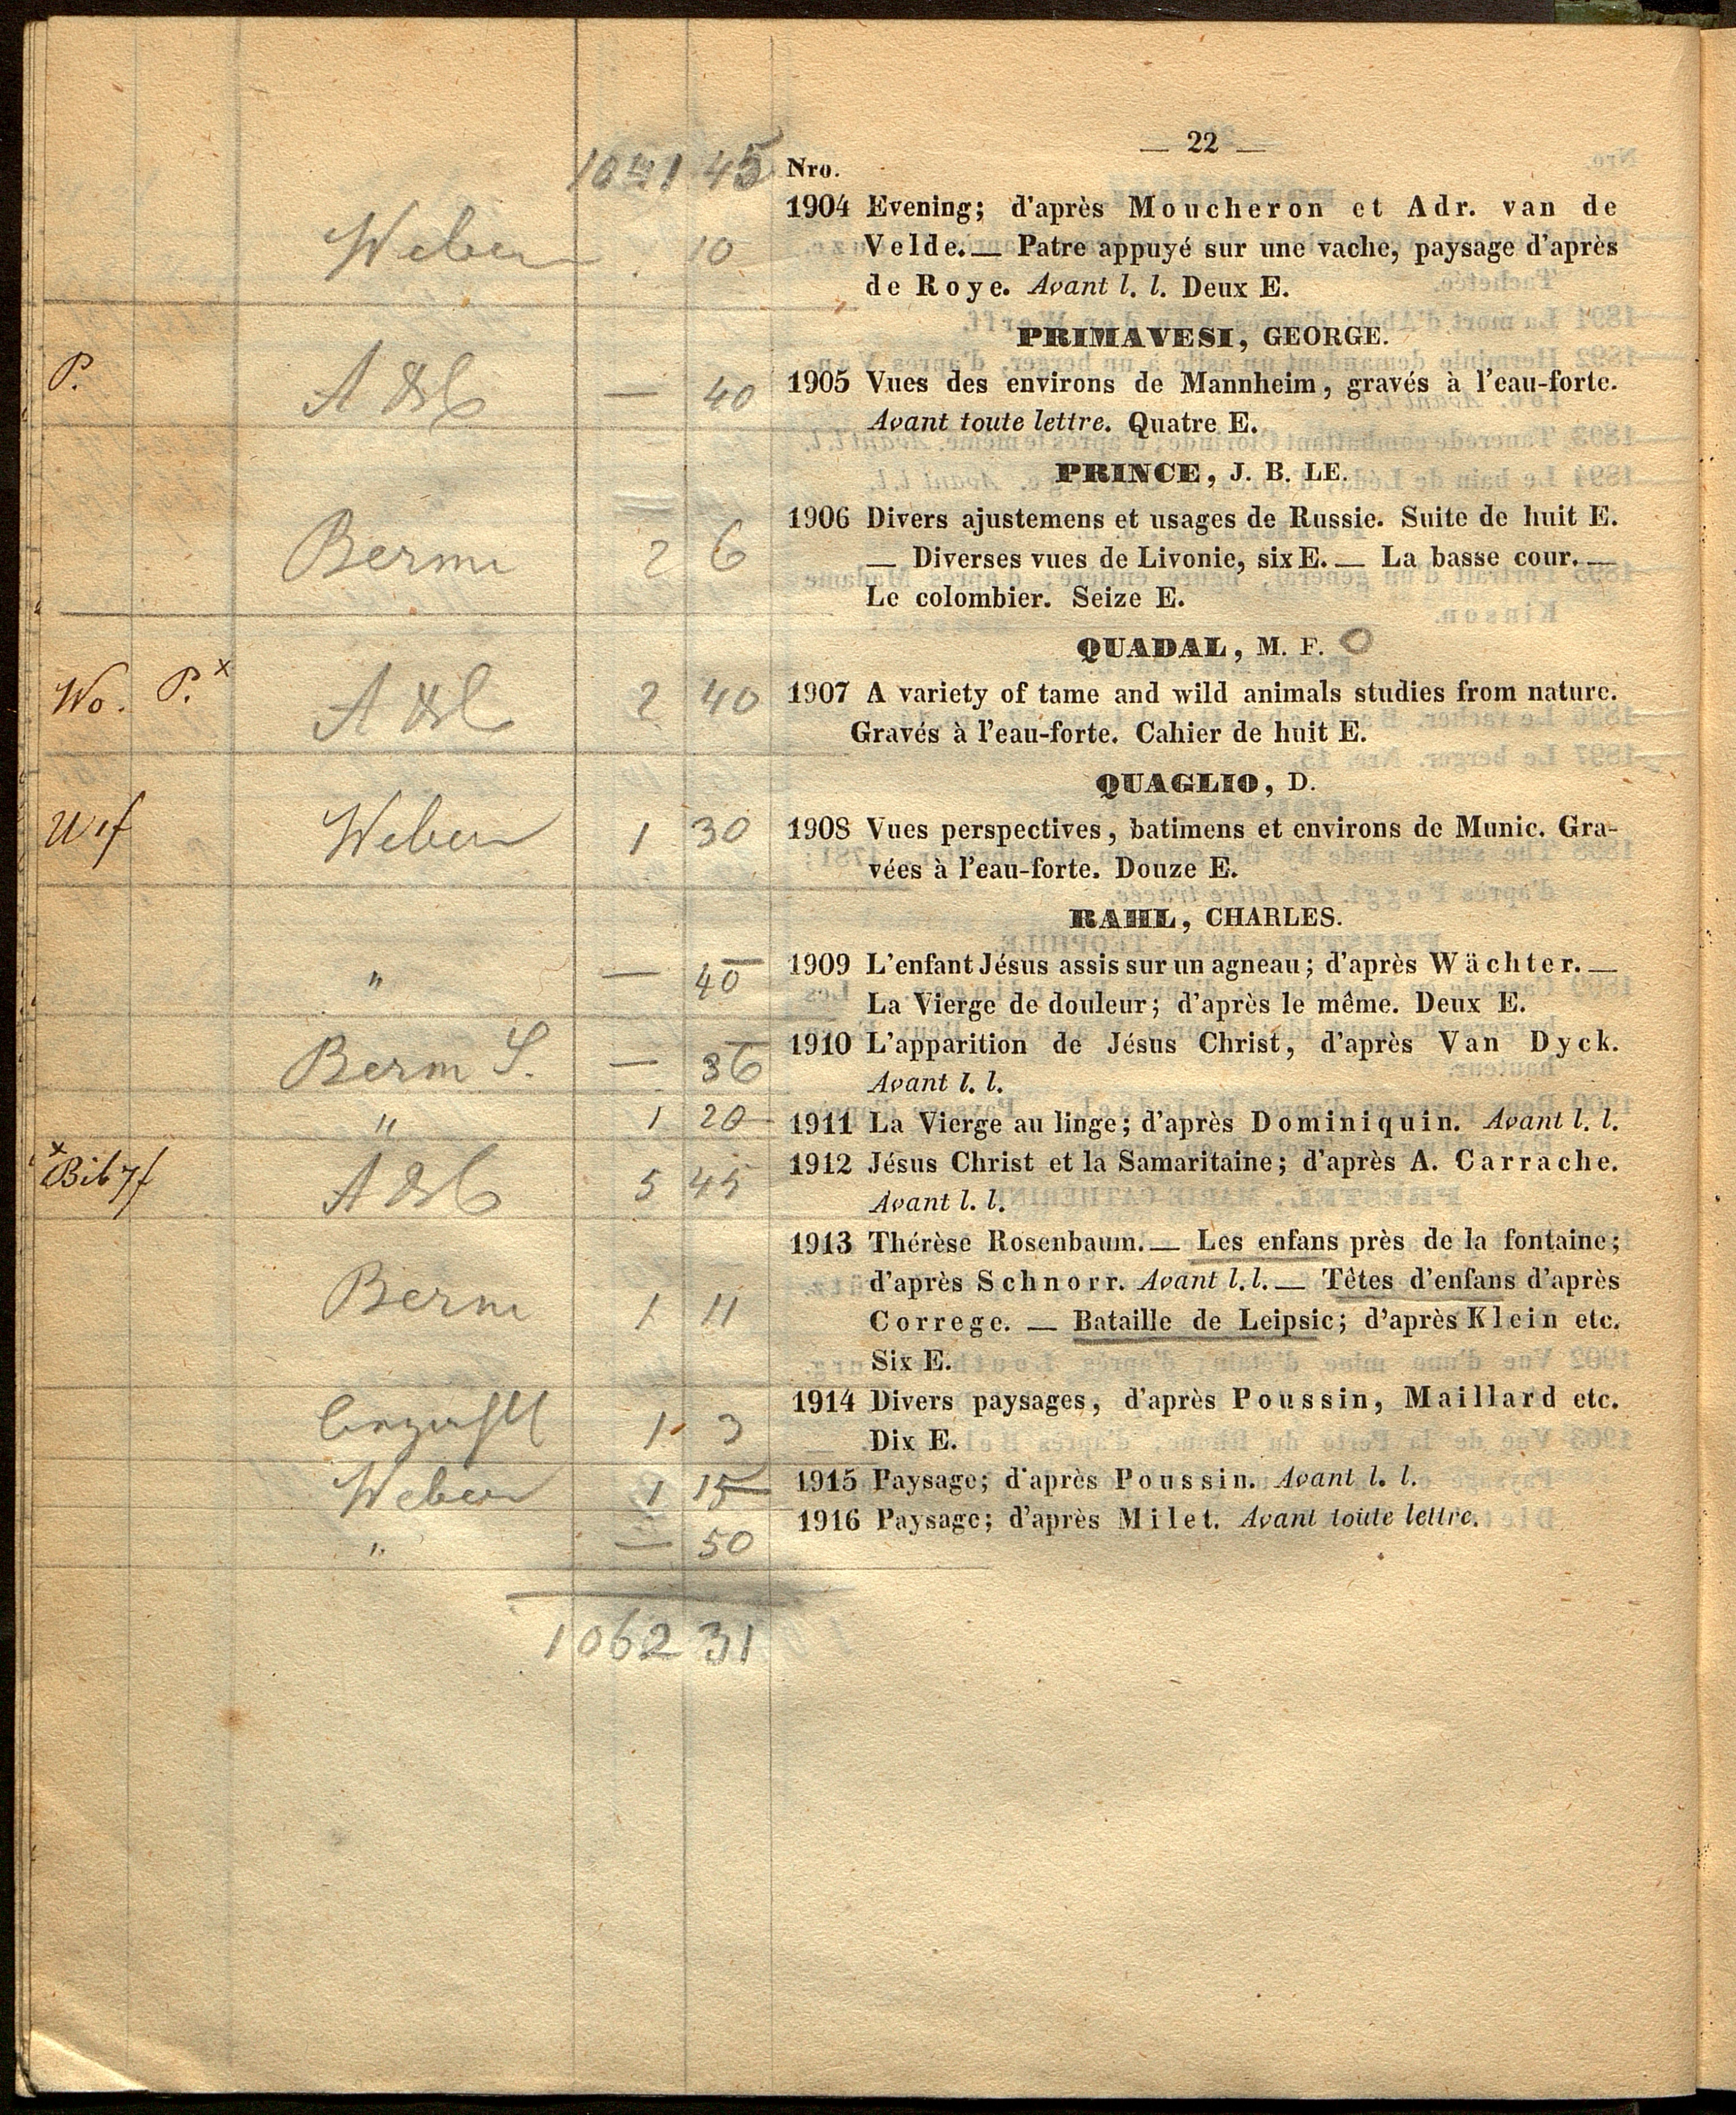 — 22 —
45 Nro.
1904 Evening; d'après Moucheron et Adr. van de
Weber 10 Velde.— Patre appuyé sur une vache, paysage d'après
de Roye. Avant l. l. Deux E.
PRIMAVESI, GEORGE.
P. — 40 1905 Vues des environs de Mannheim, gravés à l'eau-forte.
Avant toute lettre. Quatre E.
PRINCE, J. B. LE.
1906 Divers ajustemens et usages de Russie. Suite de huit E.
Berm 2 6 — Diverses vues de Livonie, six E.— La basse cour.—
Le colombier. Seize E.
QUADAL, M. F. O
Wo. P.x 2 40 1907 A variety of tame and wild animals studies from nature.
Gravés à l'eau-forte. Cahier de huit E.
QUAGLIO, D.
Weber 1 30 1908 Vues perspectives, batimens et environs de Munic. Gra-
vées à l'eau-forte. Douze E.
RAHL, CHARLES.
" — 40 1909 L'enfant Jésus assis sur un agneau; d'après Wächter.—
La Vierge de douleur; d'après le même. Deux E.
Berm S. — 36 1910 L'apparition de Jésus Christ, d'après Van Dyck.
Avant l. l.
" 1 20 1911 La Vierge au linge; d'après Dominiquin. Avant l. l.
5 45 1912 Jésus Christ et la Samaritaine; d'après A. Carrache.
Avant l. l.
1913 Thérèse Rosenbaum.— Les enfans près de la fontaine;
d'après Schnorr. Avant l. l.— Têtes d'enfans d'après
Berm 1 11 Correge. — Bataille de Leipsic; d'après Klein etc.
Six E.
1 3 1914 Divers paysages, d'après Poussin, Maillard etc.
Dix E.
Weber 1 15 1915 Paysage; d'après Poussin. Avant l. l.
" — 50 1916 Paysage; d'après Milet. Avant toute lettre.
1062 31